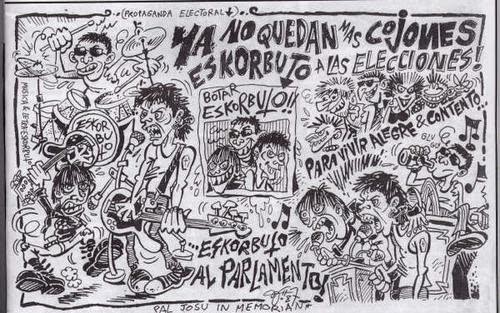 (PROPAGANDA ELECTORAL)
YA NO QUEDAN MAS COJONES
ESKORBUTO A LAS ELECCIONES!
BOTAR
ESKORBUTO!!
ESKOR
PARA VIVIR ALEGRE & CONTENTO...
GLU
...ESKORBUTO
AL PARLAMENTO!
PAL JOSU IN MEMORIAN